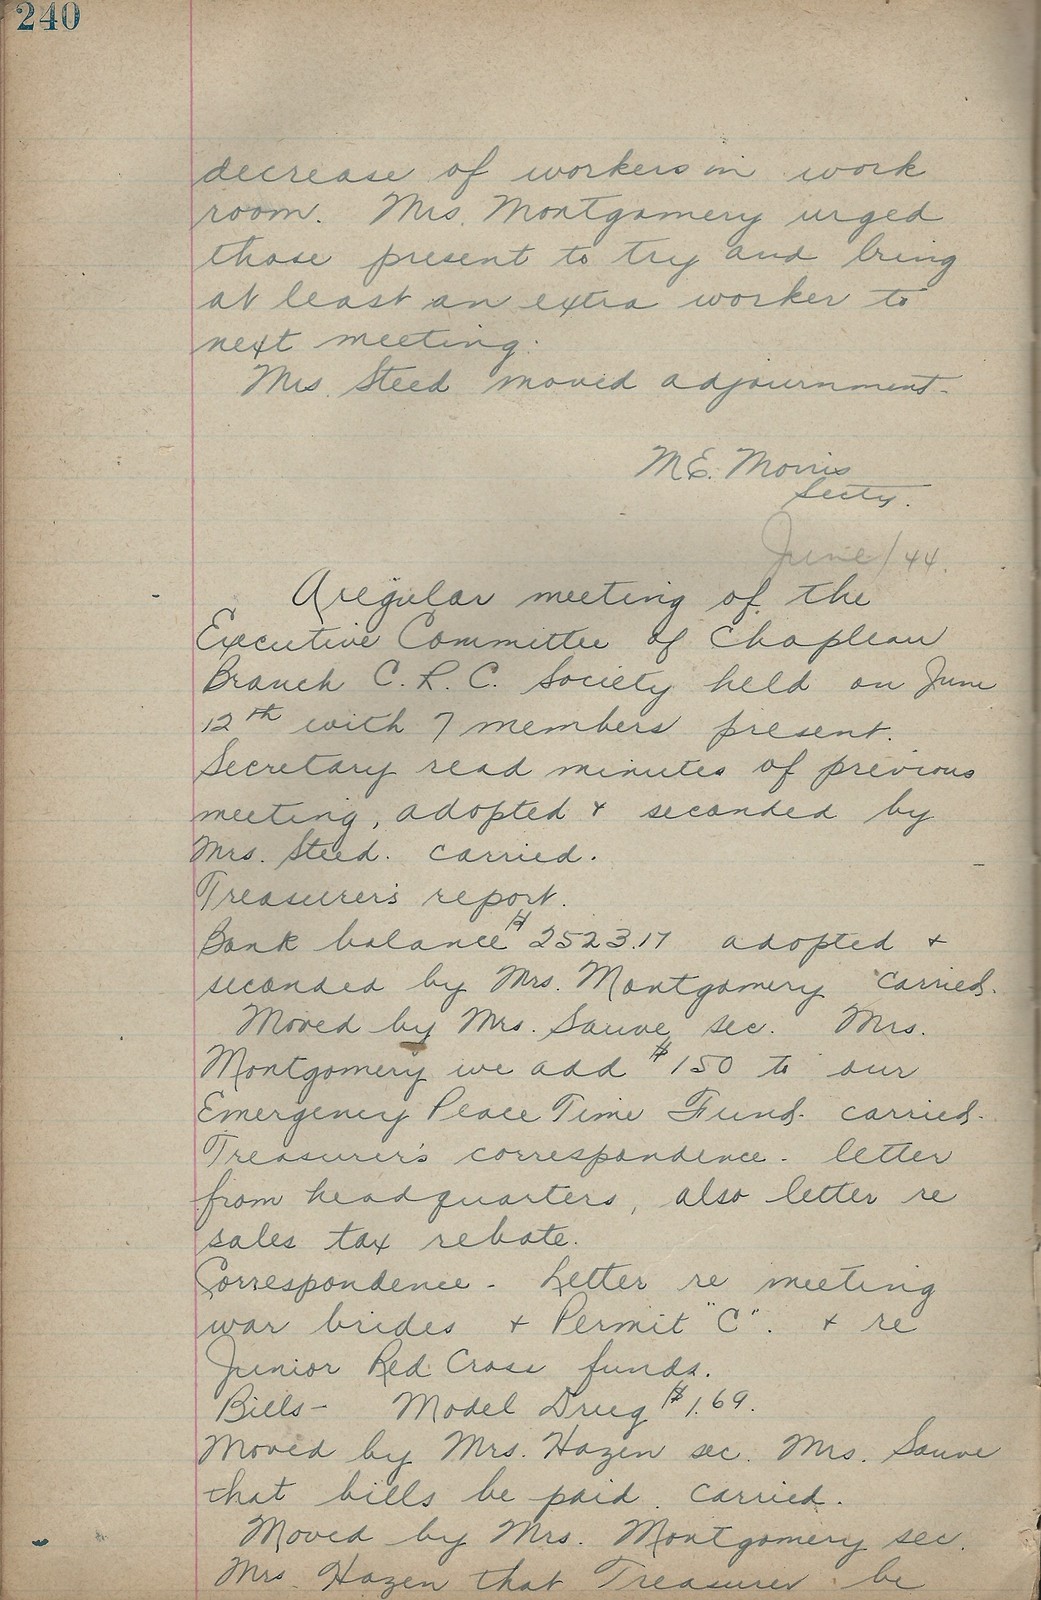 240
decrease of workers in work
room. Mrs. Montgomery urged
those present to try and bring
at least an extra worker to
next meeting.
Mrs. Steed moved adjournment.
M.E. Morris
Secty.
June/44.
A regular meeting of the
Executive Committee of Chapleau
Branch C. R. C. Society held on June
12th with 7 members present.
Secretary read minutes of previous
meeting, adopted & seconded by
Mrs. Steed. carried.
Treasurer's report.
Bank balance $2523.17 adopted &
seconded by Mrs. Montgomery carried.
Moved by Mrs. Sauve sec. Mrs.
Montgomery we add $150 to our
Emergency Peace Time Fund. carried.
Treasurer's correspondence - letter
from headquarters, also letter re
sales tax rebate.
Correspondence - Letter re meeting
war brides & Permit "C". & re
Junior Red Cross funds.
Bills - Model Drug $1.69.
Moved by Mrs. Hazen sec. Mrs. Sauve
that bills be paid. carried.
Moved by Mrs. Montgomery sec.
Mrs. Hazen that Treasurer be